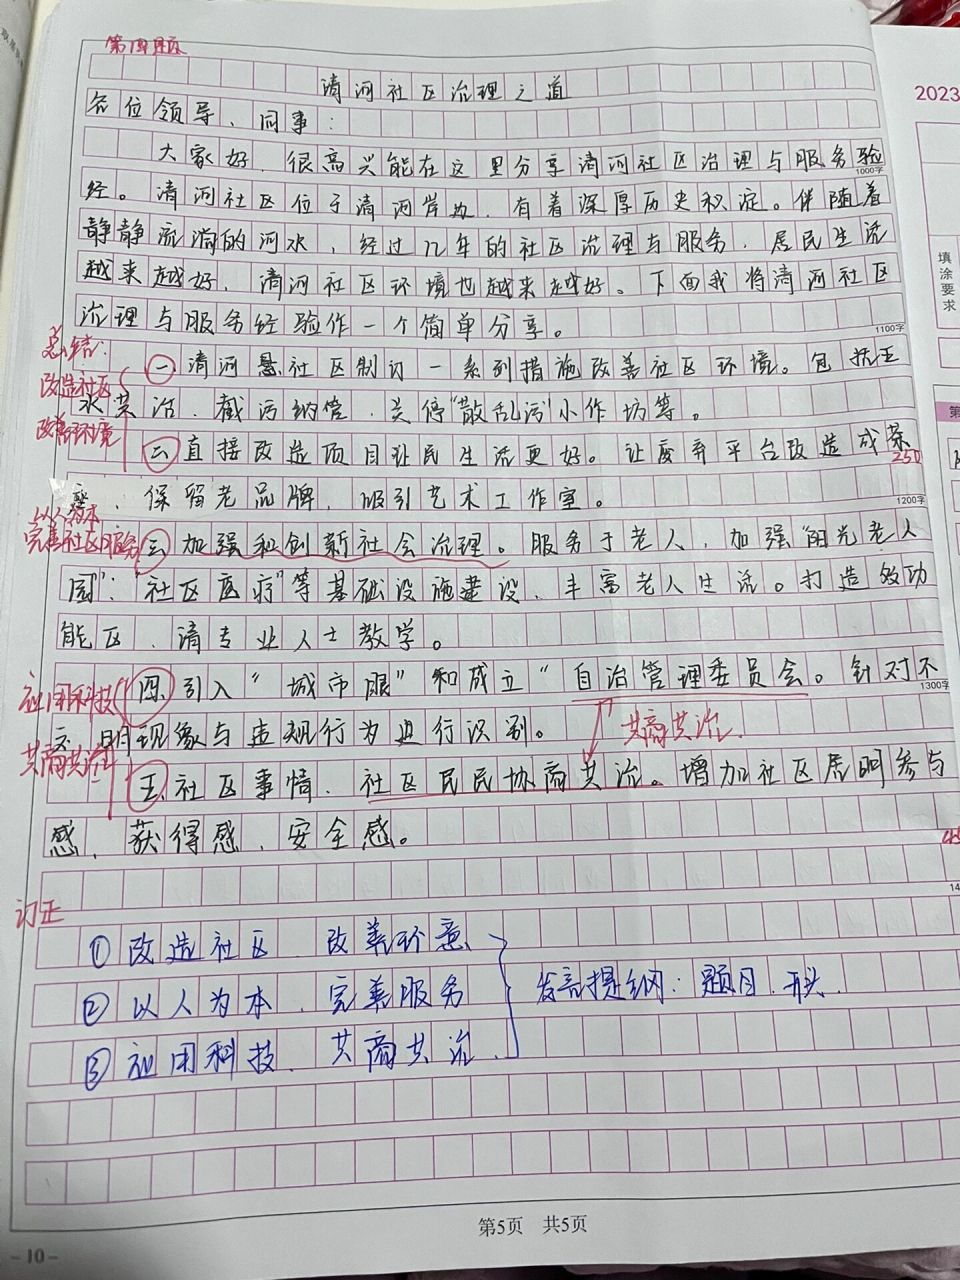 第四题
清河社区治理之道
2023
各位领导、同事:
大家好、很高兴能在这里分享清河社区治理与服务验
1000字
经。清河社区位于清河岸边、有着深厚历史积淀。伴随着
静静流淌的河水,经过几年的社区治理与服务,居民生活
填涂要求
越来越好,清河社区环境也越来越好。下面我将清河社区
治理与服务经验作一个简单分享。
1100字
总结:
一、清河社区制订一系列措施改善社区环境。包括王
改造社区
水共治、截污纳管、关停“散乱污”小作坊等。
改善环境
二、直接改造项目让民生活更好。让废弃平台改造成茶
250
、保留老品牌,吸引艺术工作室。
1200字
以人为本
完善社区服务
三、加强和创新社会治理。服务于老人,加强“阳光老人
园”:“社区医疗”等基础设施建设、丰富老人生活。打造效功
能区、请专业人士教学。
应用科技
四、引入“城市眼”和成立“自治管理委员会。针对不
1300字
文明现象与违规行为进行识别。
共商共治.
共商共治
五、社区事情、社区民民协商共治。增加社区居明参与
感、获得感、安全感。
订正
①改造社区、改善环意
②以人为本、完善服务
发言提纲:题目、开头.
③应用科技、共商共治.
第5页 共5页
-10-